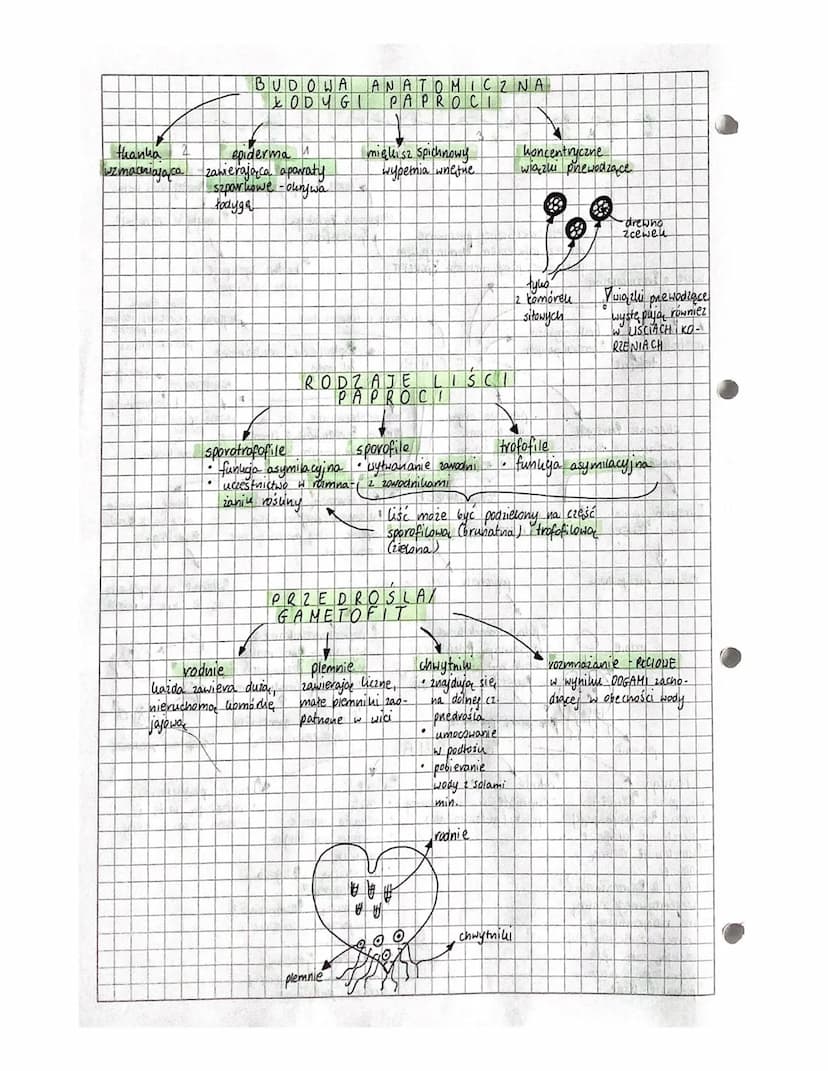 BUDOWA ANATOMICZNA
ŁODYGI PAPROCI
tkanka 2
wzmacniająca
epiderma 1
zawierająca aparaty
szparkowe - okrywa
łodygę
miękisz spichrzowy 3
wypełnia wnętrze
koncentryczne
wiązki przewodzące
drewno
z cewek
łyko
z komórek
sitowych
wiązki przewodzące
występują również
w LIŚCIACH i KO-
RZENIACH
RODZAJE LIŚCI
PAPROCI
sporotrofofile
• funkcja asymilacyjna
• uczestnictwo w rozmna-
żaniu rośliny
sporofile
• wytwarzanie zarodni
z zarodnikami
trofofile
• funkcja asymilacyjna
! liść może być podzielony na część
sporofilową (brunatna) i trofofilową
(zielona)
PRZEDROŚLA/
GAMETOFIT
rodnie
każda zawiera dużą,
nieruchomą komórkę
jajową
plemnie
zawierają liczne,
małe plemniki zao-
patrzone w wici
chwytniki
• znajdują się
na dolnej cz.
przedrośla
• umocowanie
w podłożu
• pobieranie
wody z solami
min.
rozmnażanie - PŁCIOWE
w wyniku OOGAMI zacho-
dzącej w obecności wody
rodnie
chwytniki
plemnie